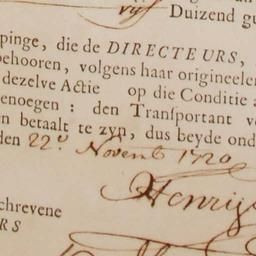 vyf Duizend gu
pinge, die de DIRECTEURS,
behooren, volgens haar origineelen
dezelve Actie op die Conditie a
enoegen : den Tranſportant v
n betaalt te zyn, dus beyde ond
den 22 Novemb 1720
Henrij
chrevene
RS